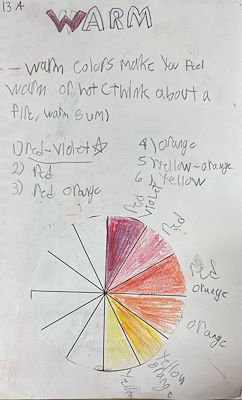 13 A
WARM
- warm colors make you feel
warm or hot (think about a
fire, warm sum)
1) red-violet ☆
2) Red
3) Red orange
4) orange
5) Yellow-orange
6) Yellow
Red
violet
Red
Red
orange
orange
Yellow
orange
Yellow